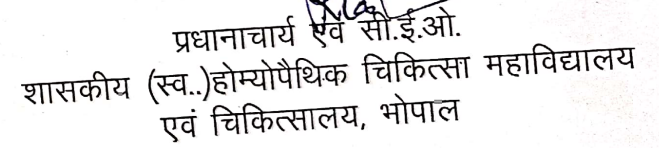 प्रधानाचार्य एवं सी.ई.ओ.
शासकीय (स्व..)होम्योपैथिक चिकित्सा महाविद्यालय
एवं चिकित्सालय, भोपाल